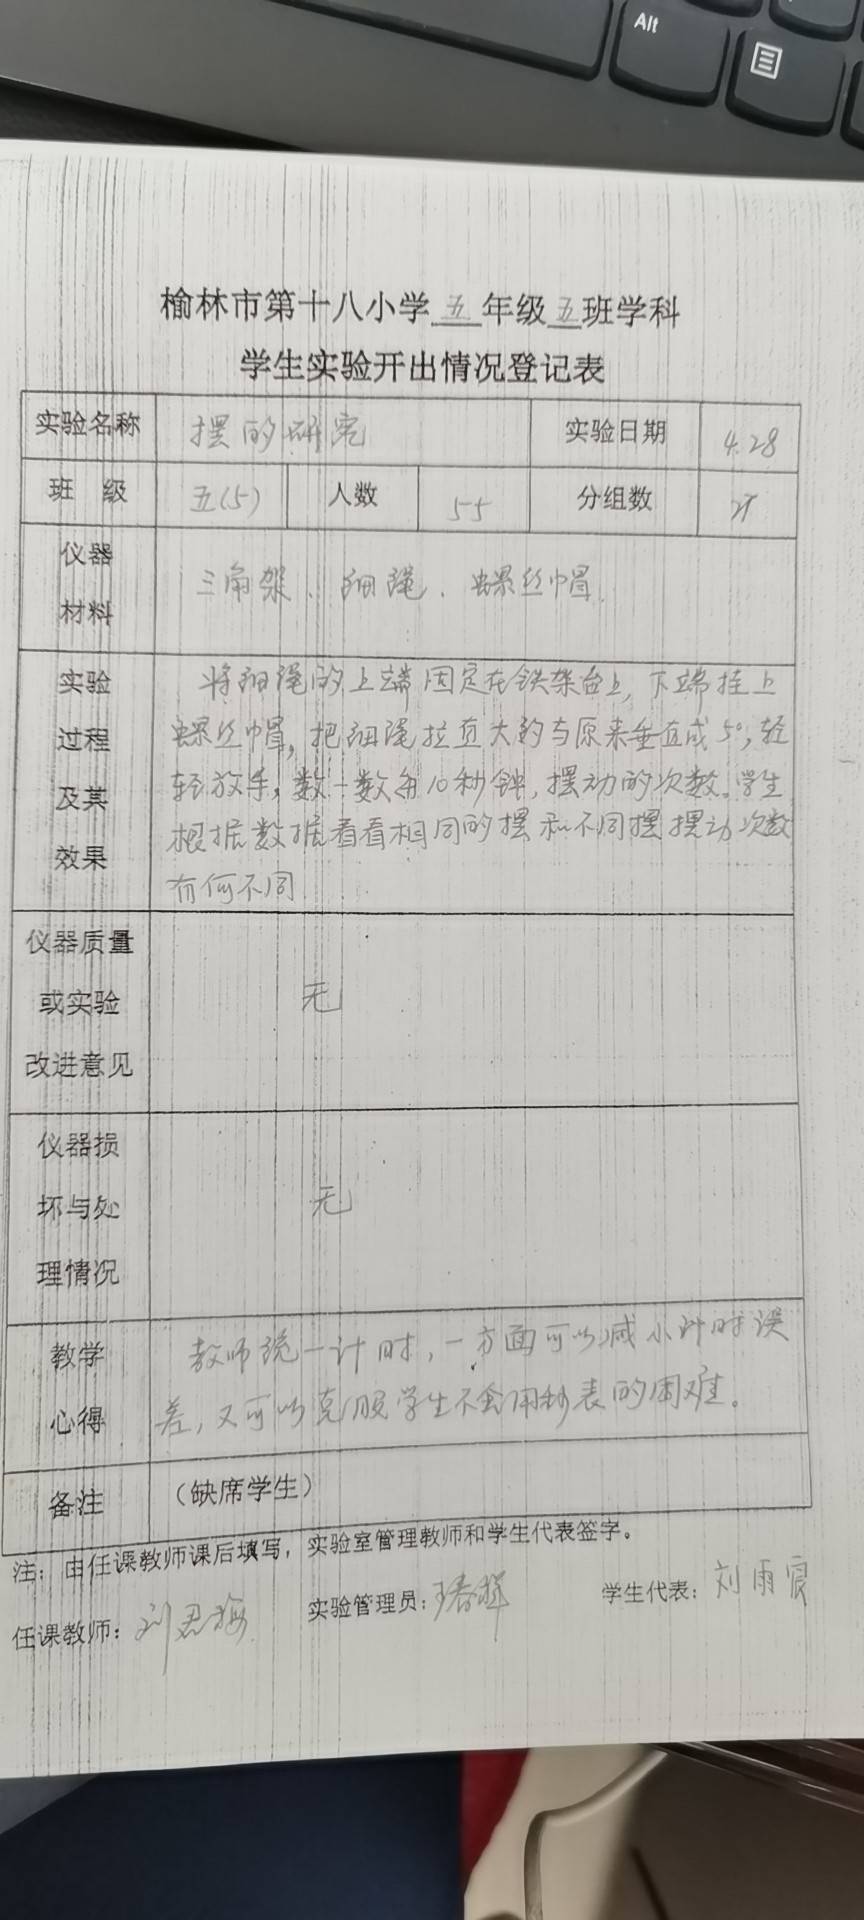 Alt
榆林市第十八小学五年级五班学科
学生实验开出情况登记表
实验名称 摆的研究 实验日期 4.28
班 级 五(5) 人数 55 分组数
仪器 材料 三角架、细绳、螺丝帽.
实验 将细绳的上端固定在铁架台上,下端挂上
过程 螺丝帽,把细绳拉直大约与原来垂直成5°,轻
及其 轻放手,数一数每10秒钟,摆动的次数。学生
效果 根据数据看看相同的摆和不同摆摆动次数
有何不同
仪器质量
或实验 无
改进意见
仪器损
坏与处 无
理情况
教学 教师统一计时,一方面可以减小计时误
心得 差,又可以克服学生不会用秒表的困难。
备注 (缺席学生)
注:由任课教师课后填写,实验室管理教师和学生代表签字。
任课教师: 刘 实验管理员: 学生代表:刘雨